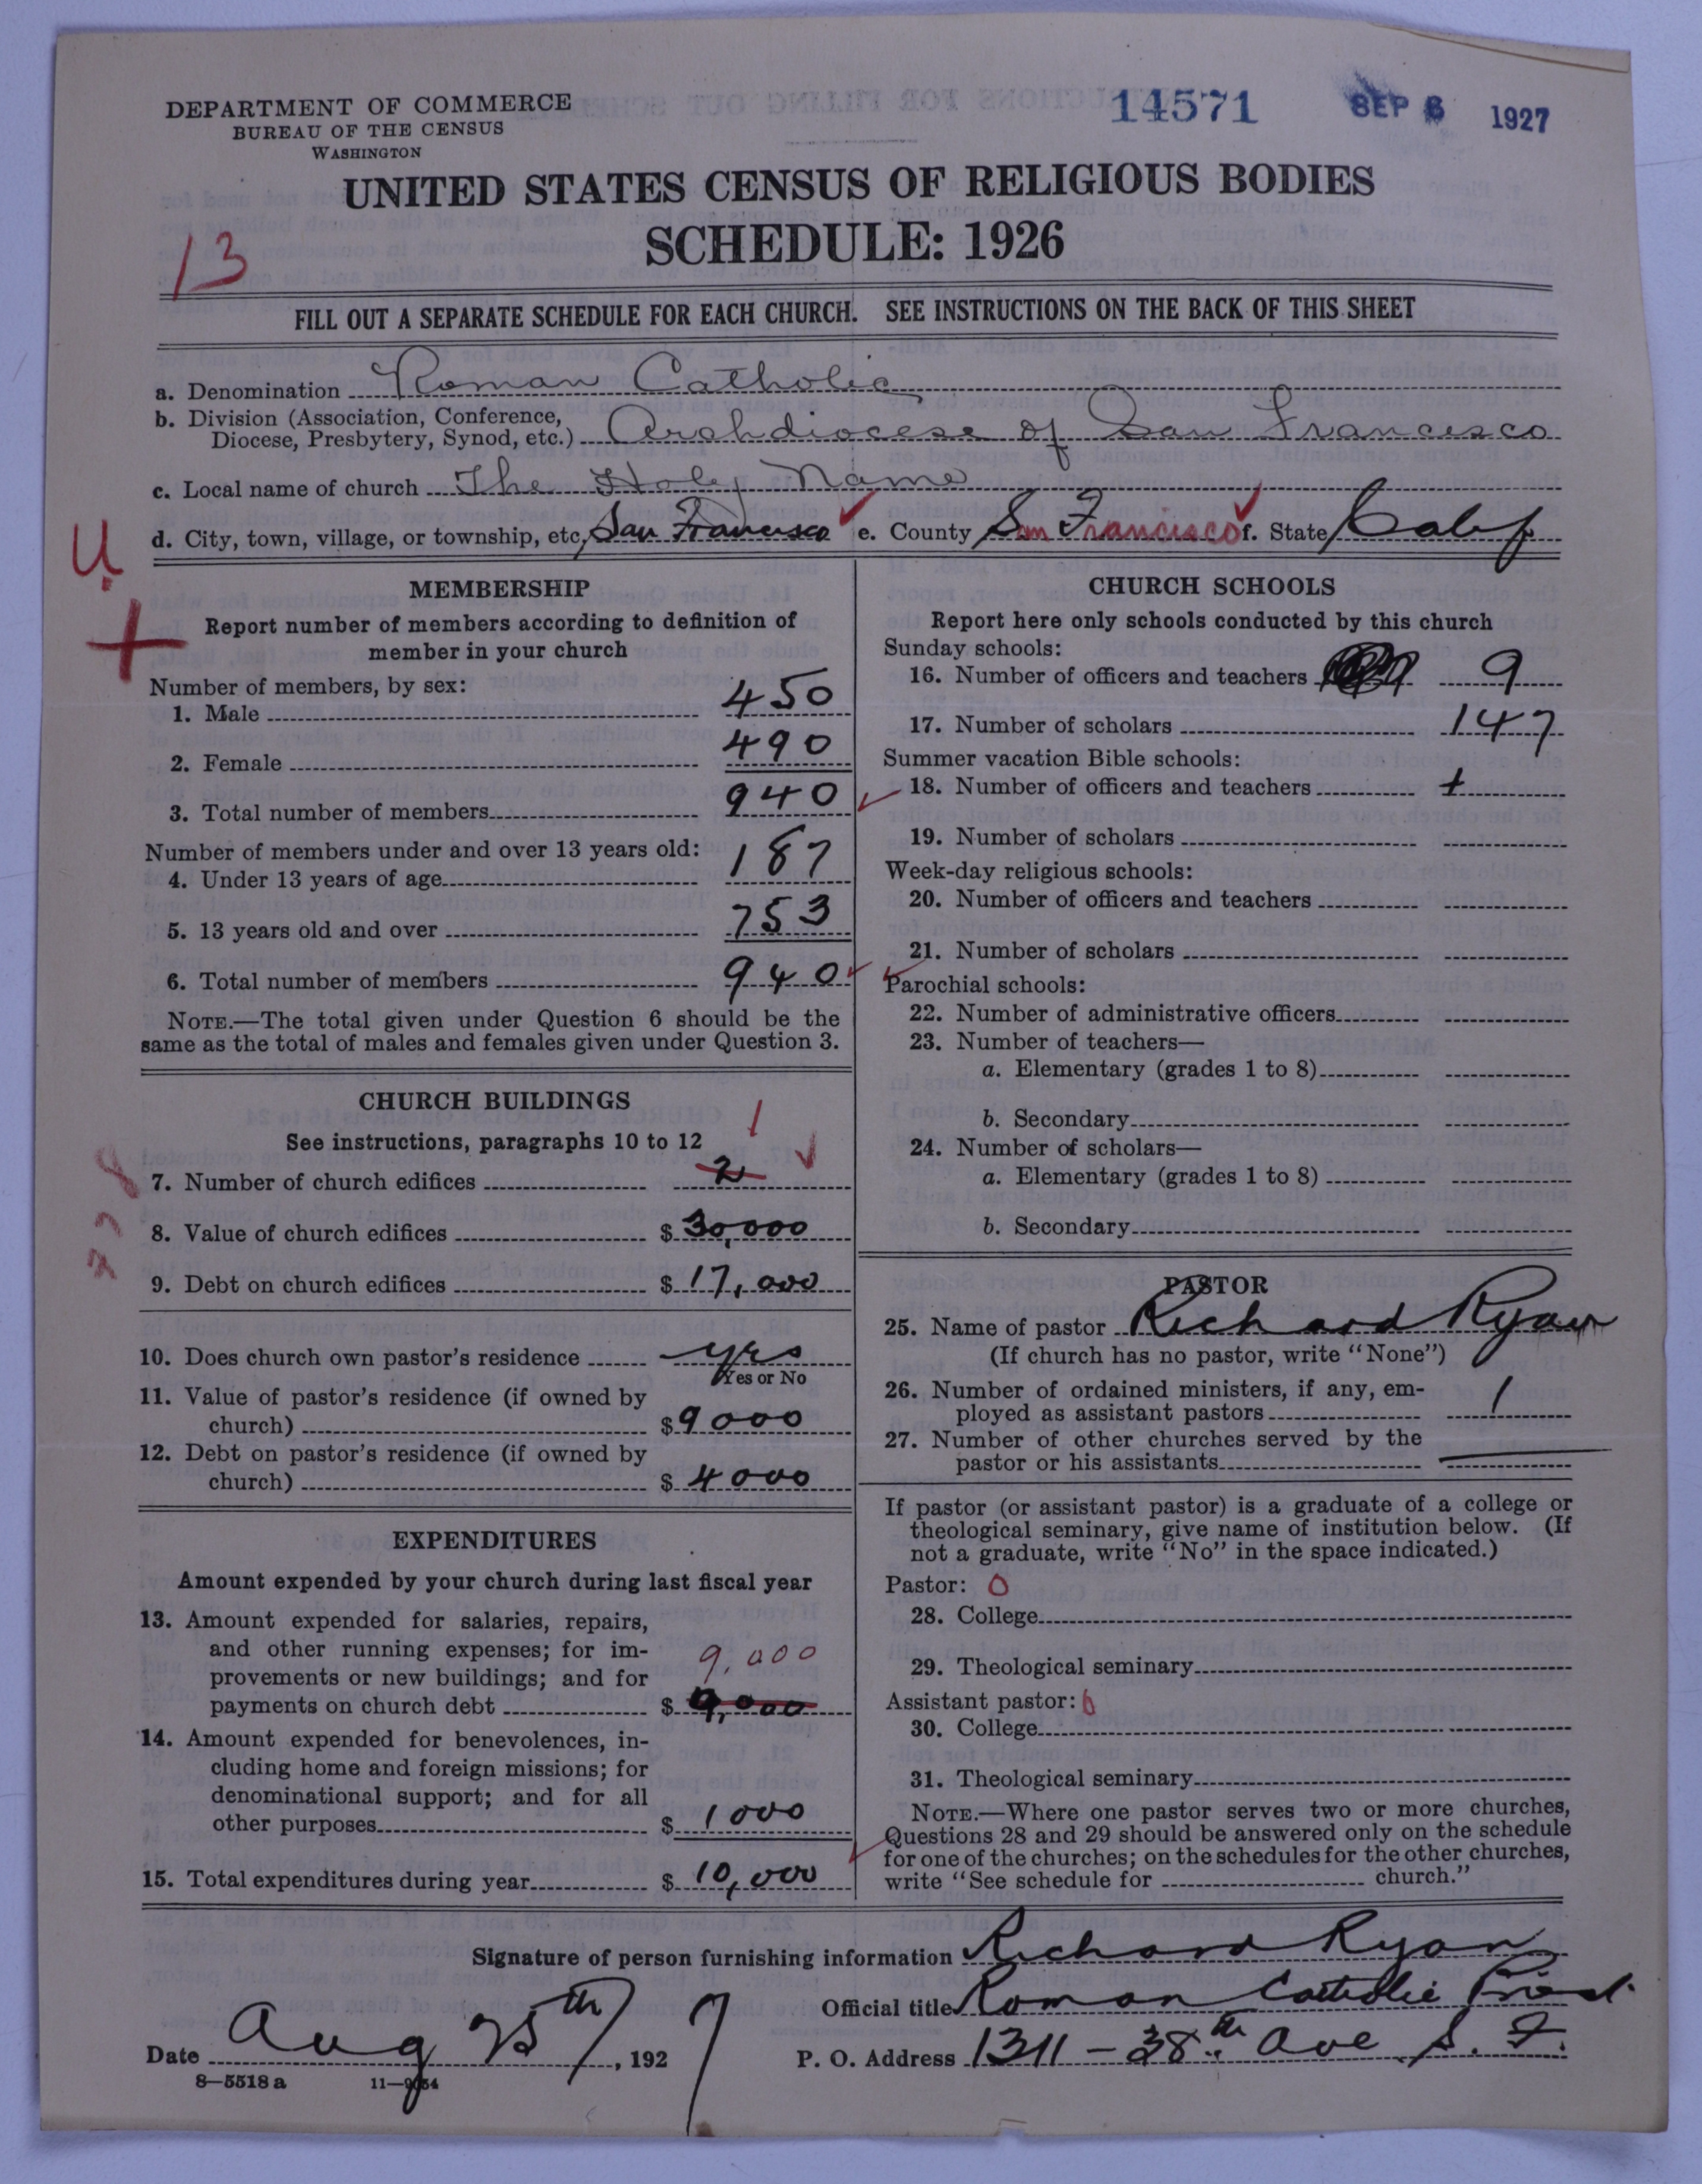 DEPARTMENT OF COMMERCE
BUREAU OF THE CENSUS
WASHINGTON
14571
SEP 6 1927
UNITED STATES CENSUS OF RELIGIOUS BODIES
SCHEDULE: 1926
13
FILL OUT A SEPARATE SCHEDULE FOR EACH CHURCH. SEE INSTRUCTIONS ON THE BACK OF THIS SHEET
a. Denomination Roman Catholic
b. Division (Association, Conference,
Diocese, Presbytery, Synod, etc.) Archdiocese of San Francisco
c. Local name of church The Holy Name
d. City, town, village, or township, etc. San Francisco e. County San Francisco f. State Calif
U
+
MEMBERSHIP
Report number of members according to definition of
member in your church
Number of members, by sex:
1. Male 450
2. Female 490
3. Total number of members 940
Number of members under and over 13 years old:
4. Under 13 years of age 187
5. 13 years old and over 753
6. Total number of members 940
NOTE.—The total given under Question 6 should be the
same as the total of males and females given under Question 3.
CHURCH BUILDINGS
See instructions, paragraphs 10 to 12
1
7. Number of church edifices 2
8. Value of church edifices $ 30,000
9. Debt on church edifices $ 17,000
10. Does church own pastor's residence yes
Yes or No
11. Value of pastor's residence (if owned by
church) $ 9000
12. Debt on pastor's residence (if owned by
church) $ 4000
EXPENDITURES
Amount expended by your church during last fiscal year
13. Amount expended for salaries, repairs,
and other running expenses; for im-
provements or new buildings; and for 9,000
payments on church debt $ 9,000
14. Amount expended for benevolences, in-
cluding home and foreign missions; for
denominational support; and for all
other purposes $ 1000
15. Total expenditures during year $ 10,000
CHURCH SCHOOLS
Report here only schools conducted by this church
Sunday schools:
16. Number of officers and teachers 9
17. Number of scholars 147
Summer vacation Bible schools:
18. Number of officers and teachers +
19. Number of scholars
Week-day religious schools:
20. Number of officers and teachers
21. Number of scholars
Parochial schools:
22. Number of administrative officers
23. Number of teachers—
a. Elementary (grades 1 to 8)
b. Secondary
24. Number of scholars—
a. Elementary (grades 1 to 8)
b. Secondary
PASTOR
25. Name of pastor Richard Ryan
(If church has no pastor, write "None")
26. Number of ordained ministers, if any, em-
ployed as assistant pastors 1
27. Number of other churches served by the
pastor or his assistants —
If pastor (or assistant pastor) is a graduate of a college or
theological seminary, give name of institution below. (If
not a graduate, write "No" in the space indicated.)
Pastor: 0
28. College
29. Theological seminary
Assistant pastor: 0
30. College
31. Theological seminary
NOTE.—Where one pastor serves two or more churches,
Questions 28 and 29 should be answered only on the schedule
for one of the churches; on the schedules for the other churches,
write "See schedule for church."
Signature of person furnishing information Richard Ryan
Official title Roman Catholic Priest
Date Aug 25th, 1927
P. O. Address 1311 - 38th Ave S. F.
8—5518 a 11—9054